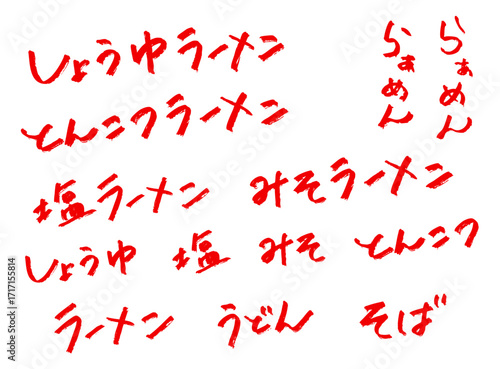 しょうゆラーメン
とんこつラーメン
らぁめん
らぁめん
塩ラーメン みそラーメン
しょうゆ 塩 みそ とんこつ
ラーメン うどん そば
Adobe Stock | #1717155814